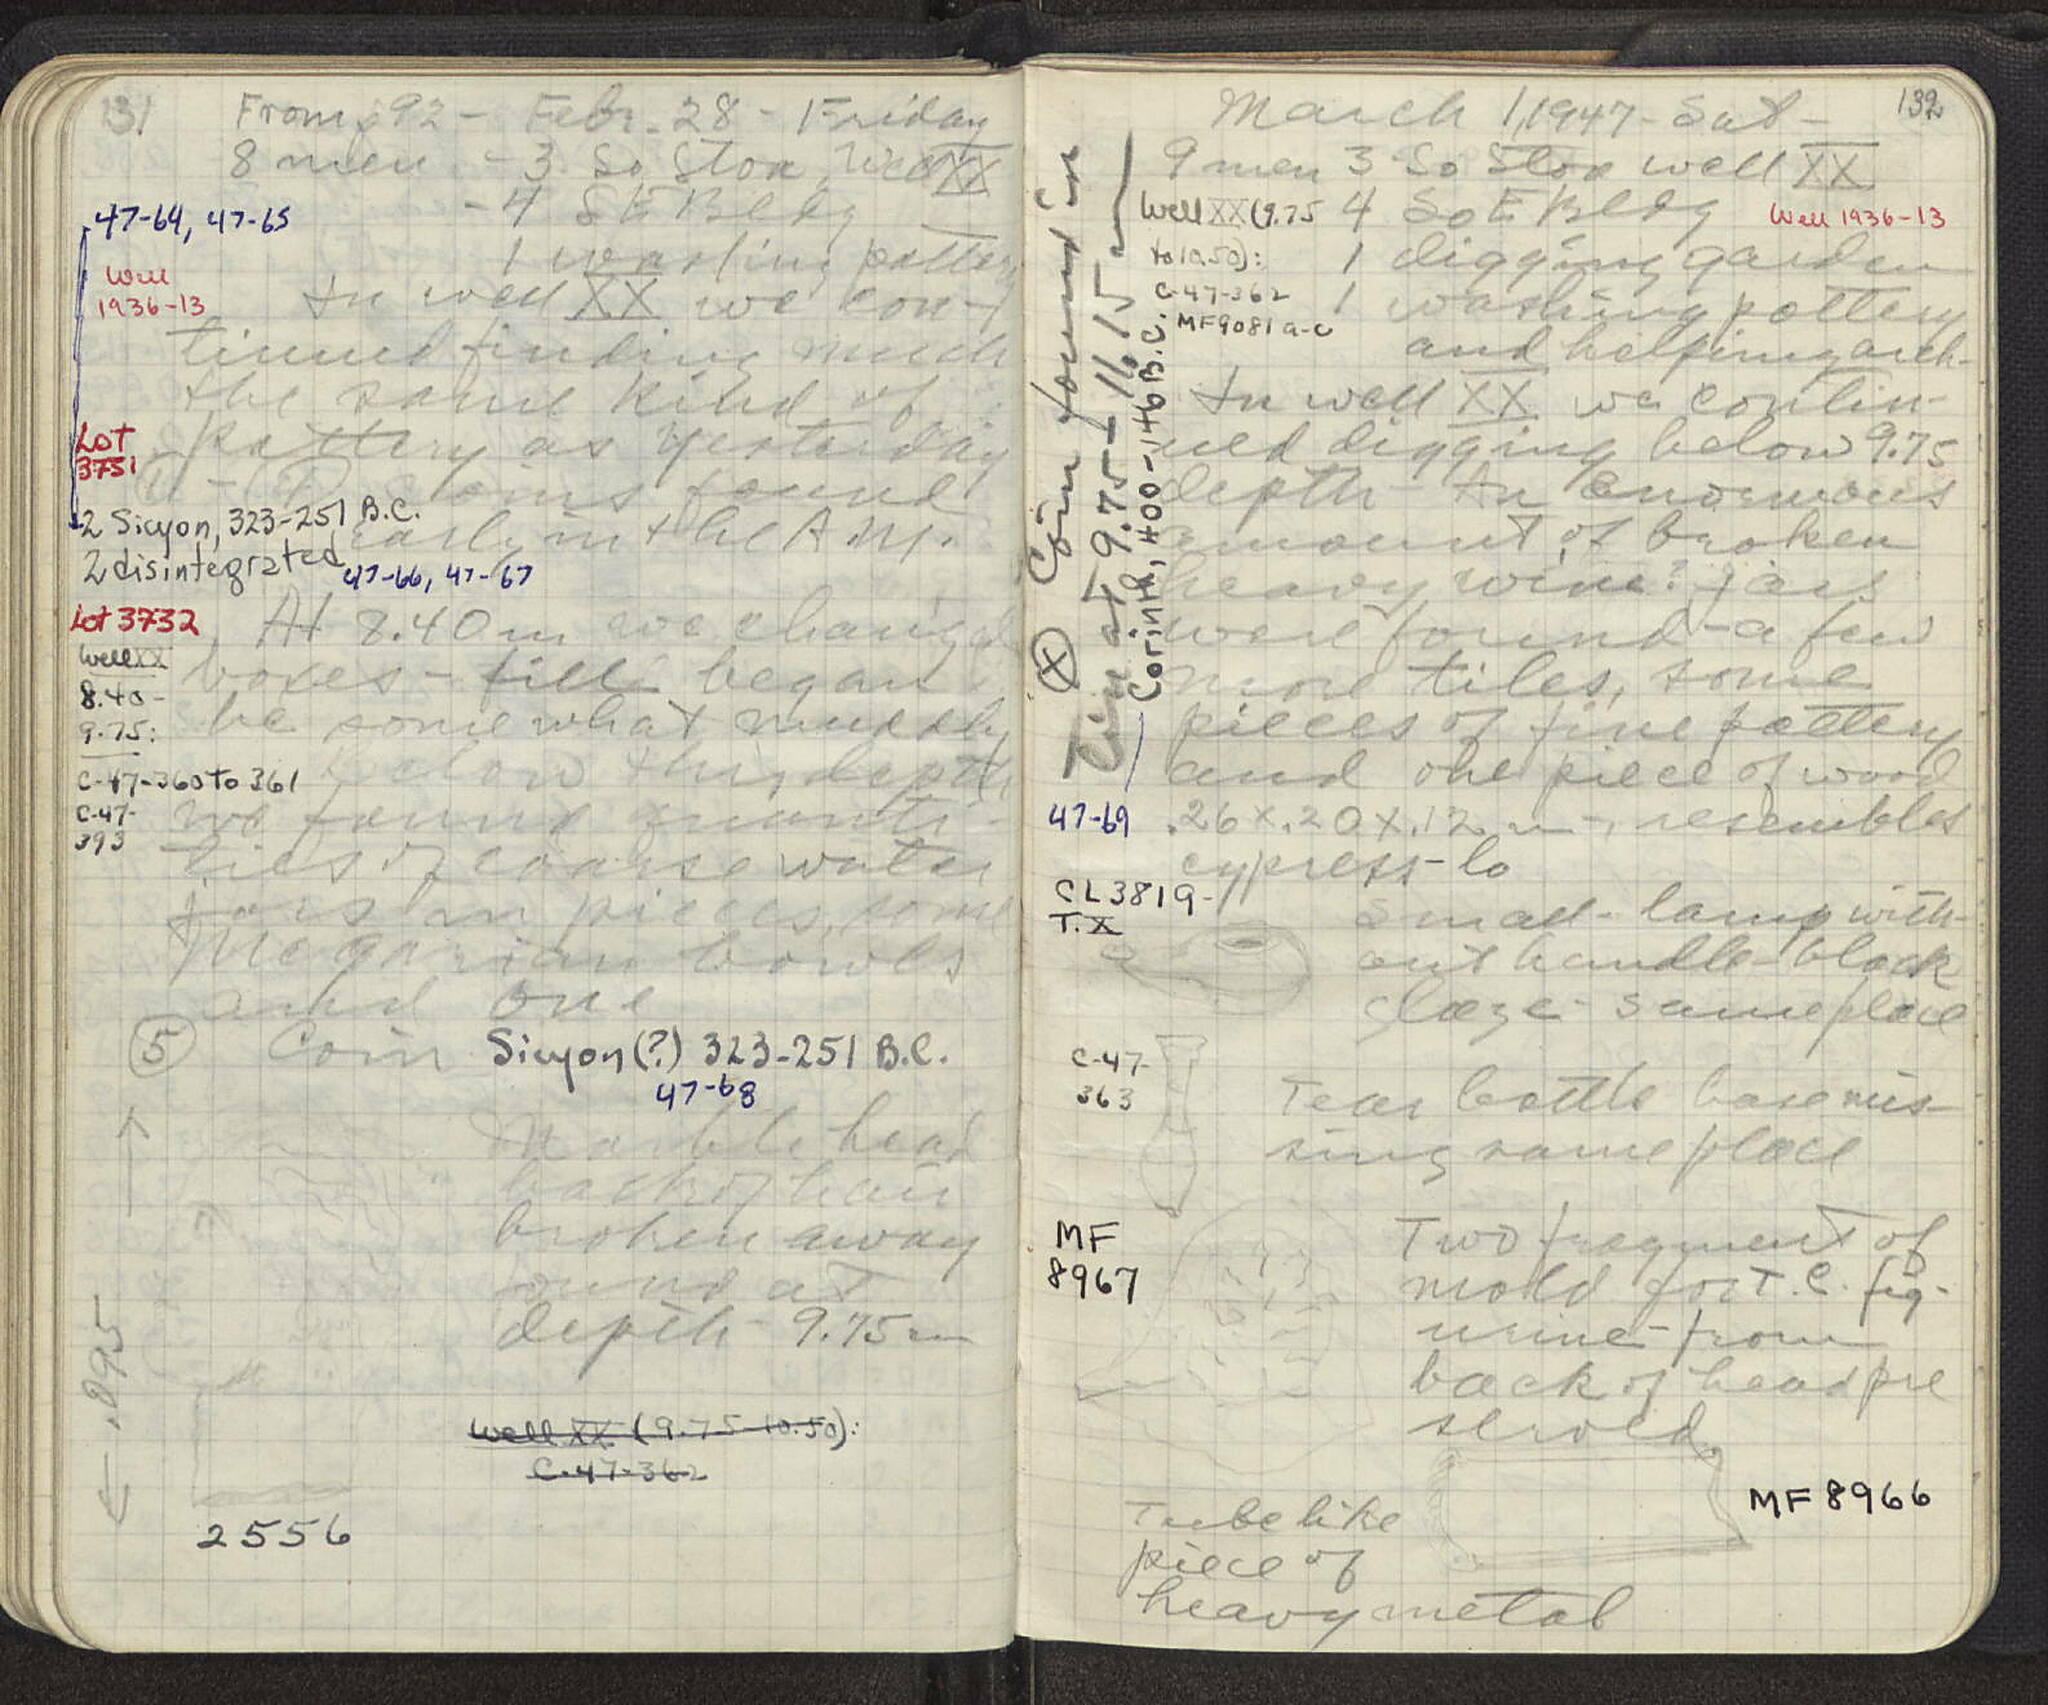 131
From p 92 - Febr. 28 - Friday
8 men - 3 So Stoa, Well XX
- 4 SE Bldg
1 washing pottery
47-64, 47-65
Well
1936-13
In well XX we con-
tinued finding much
the same kind of
pottery as yesterday
Lot
3751
coins found
early in the A.M.
2 Sicyon, 323-251 B.C.
2 disintegrated
47-66, 47-67
Lot 3732
At 8.40 m we changed
boxes - fill began
be somewhat muddy
Well XX
8.40-
9.75:
C-47-360 to 361
C-47-
393
Below this depth
we found quanti-
ties of coarse water
jars in pieces, some
Megarian bowls
and one
5 Coin Sicyon (?) 323-251 B.C.
47-68
Marble head
back of hair
broken away
found at
depth - 9.75 m
.095
2556
Well XX (9.75-10.50):
C-47-362
132
March 1, 1947 - Sat -
9 men 3 So Stoa well XX
4 So E Bldg
Well 1936-13
1 digging garden
1 washing pottery
and helping arch.
Well XX (9.75
to 10.50):
C-47-362
MF9081 a-c
In well XX we contin-
ued digging below 9.75
depth - An enormous
amount of broken
heavy wine? jars
were found - a few
more tiles, some
pieces of fine pottery
and one piece of wood
.26 x .20 x .12 m -, resembles
cypress-lo
X Coin found in
Tin at 9.75 - 11.15 m
Corinth, 400-146 B.C.
47-69
CL3819-
T.X
Small - lamp with-
out handle - black
glaze - same place
C-47-
363
Tear bottle base mis-
sing same place
MF
8967
Two fragment of
mold for T.C. fig-
urine - from
back of head pre
served
MF 8966
Tube like
piece of
heavy metal